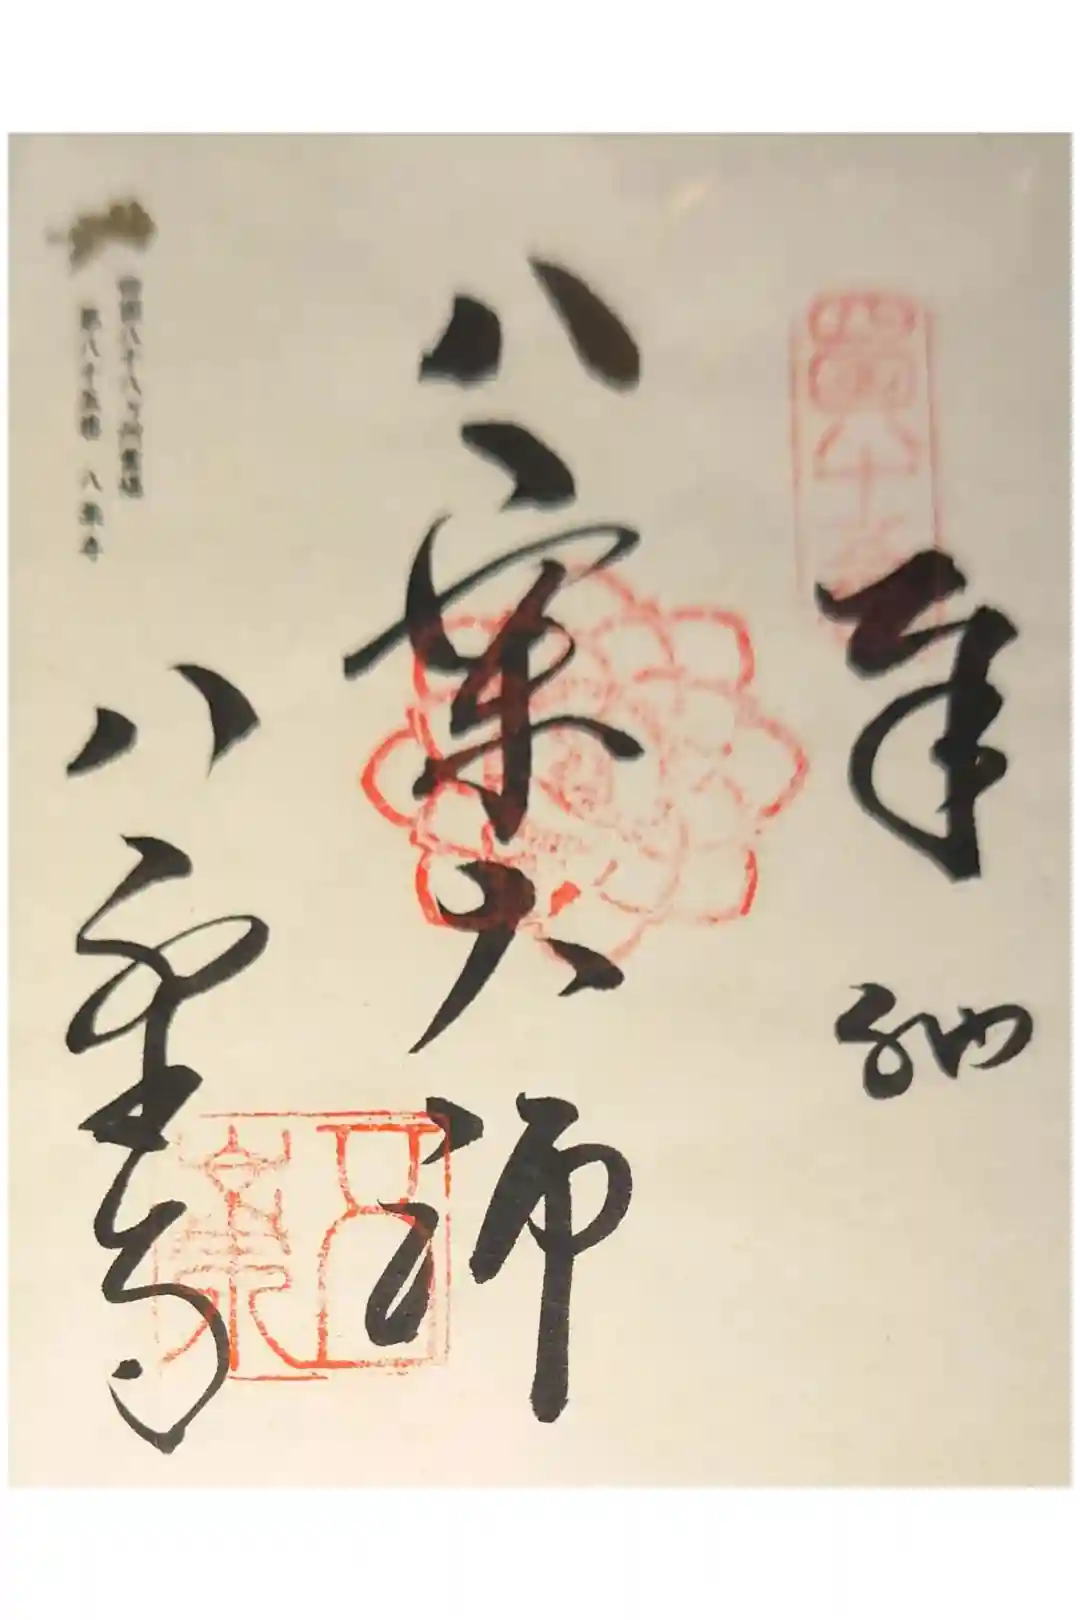 四国八十五
奉納
八栗大師
八栗寺
四国八十八ヶ所霊場
第八十五番 八栗寺